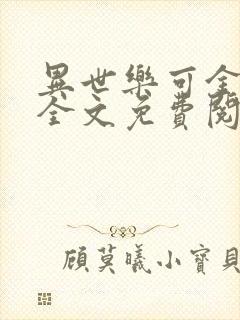 異世樂可全
全文免費閱
顧莫曦小寶貝